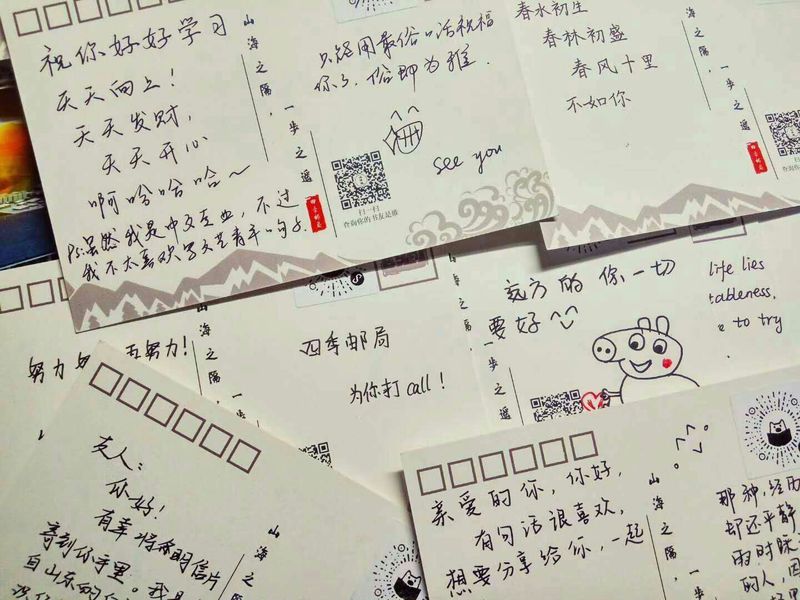 祝你好好学习
天天向上！
天天发财，
天天开心
啊哈哈哈～
Ps:虽然我是中文专业，不过
我不太喜欢写文艺青年的句子.
山海之隔，一步之遥
只能用最俗的话祝福
你了，俗即为雅.
see you
扫一扫
查询你的书友是谁
春水初生
春林初盛
春风十里
不如你
山海之隔，一步之遥
四季邮局
查询你的书友是谁
努力
努力！
山海之隔，一
四季邮局
为你打call！
远方的你一切
要好^^
life lies
tableness,
e to try
山海之隔，一步之遥
友人：
你好！
有幸将命明信片
寄到你手里。我是
自山东的
山海之隔，
亲爱的你，你好，
有句话很喜欢，
想要分享给你，一起
山海之隔，一
那种，经历
却还平静
的人，因